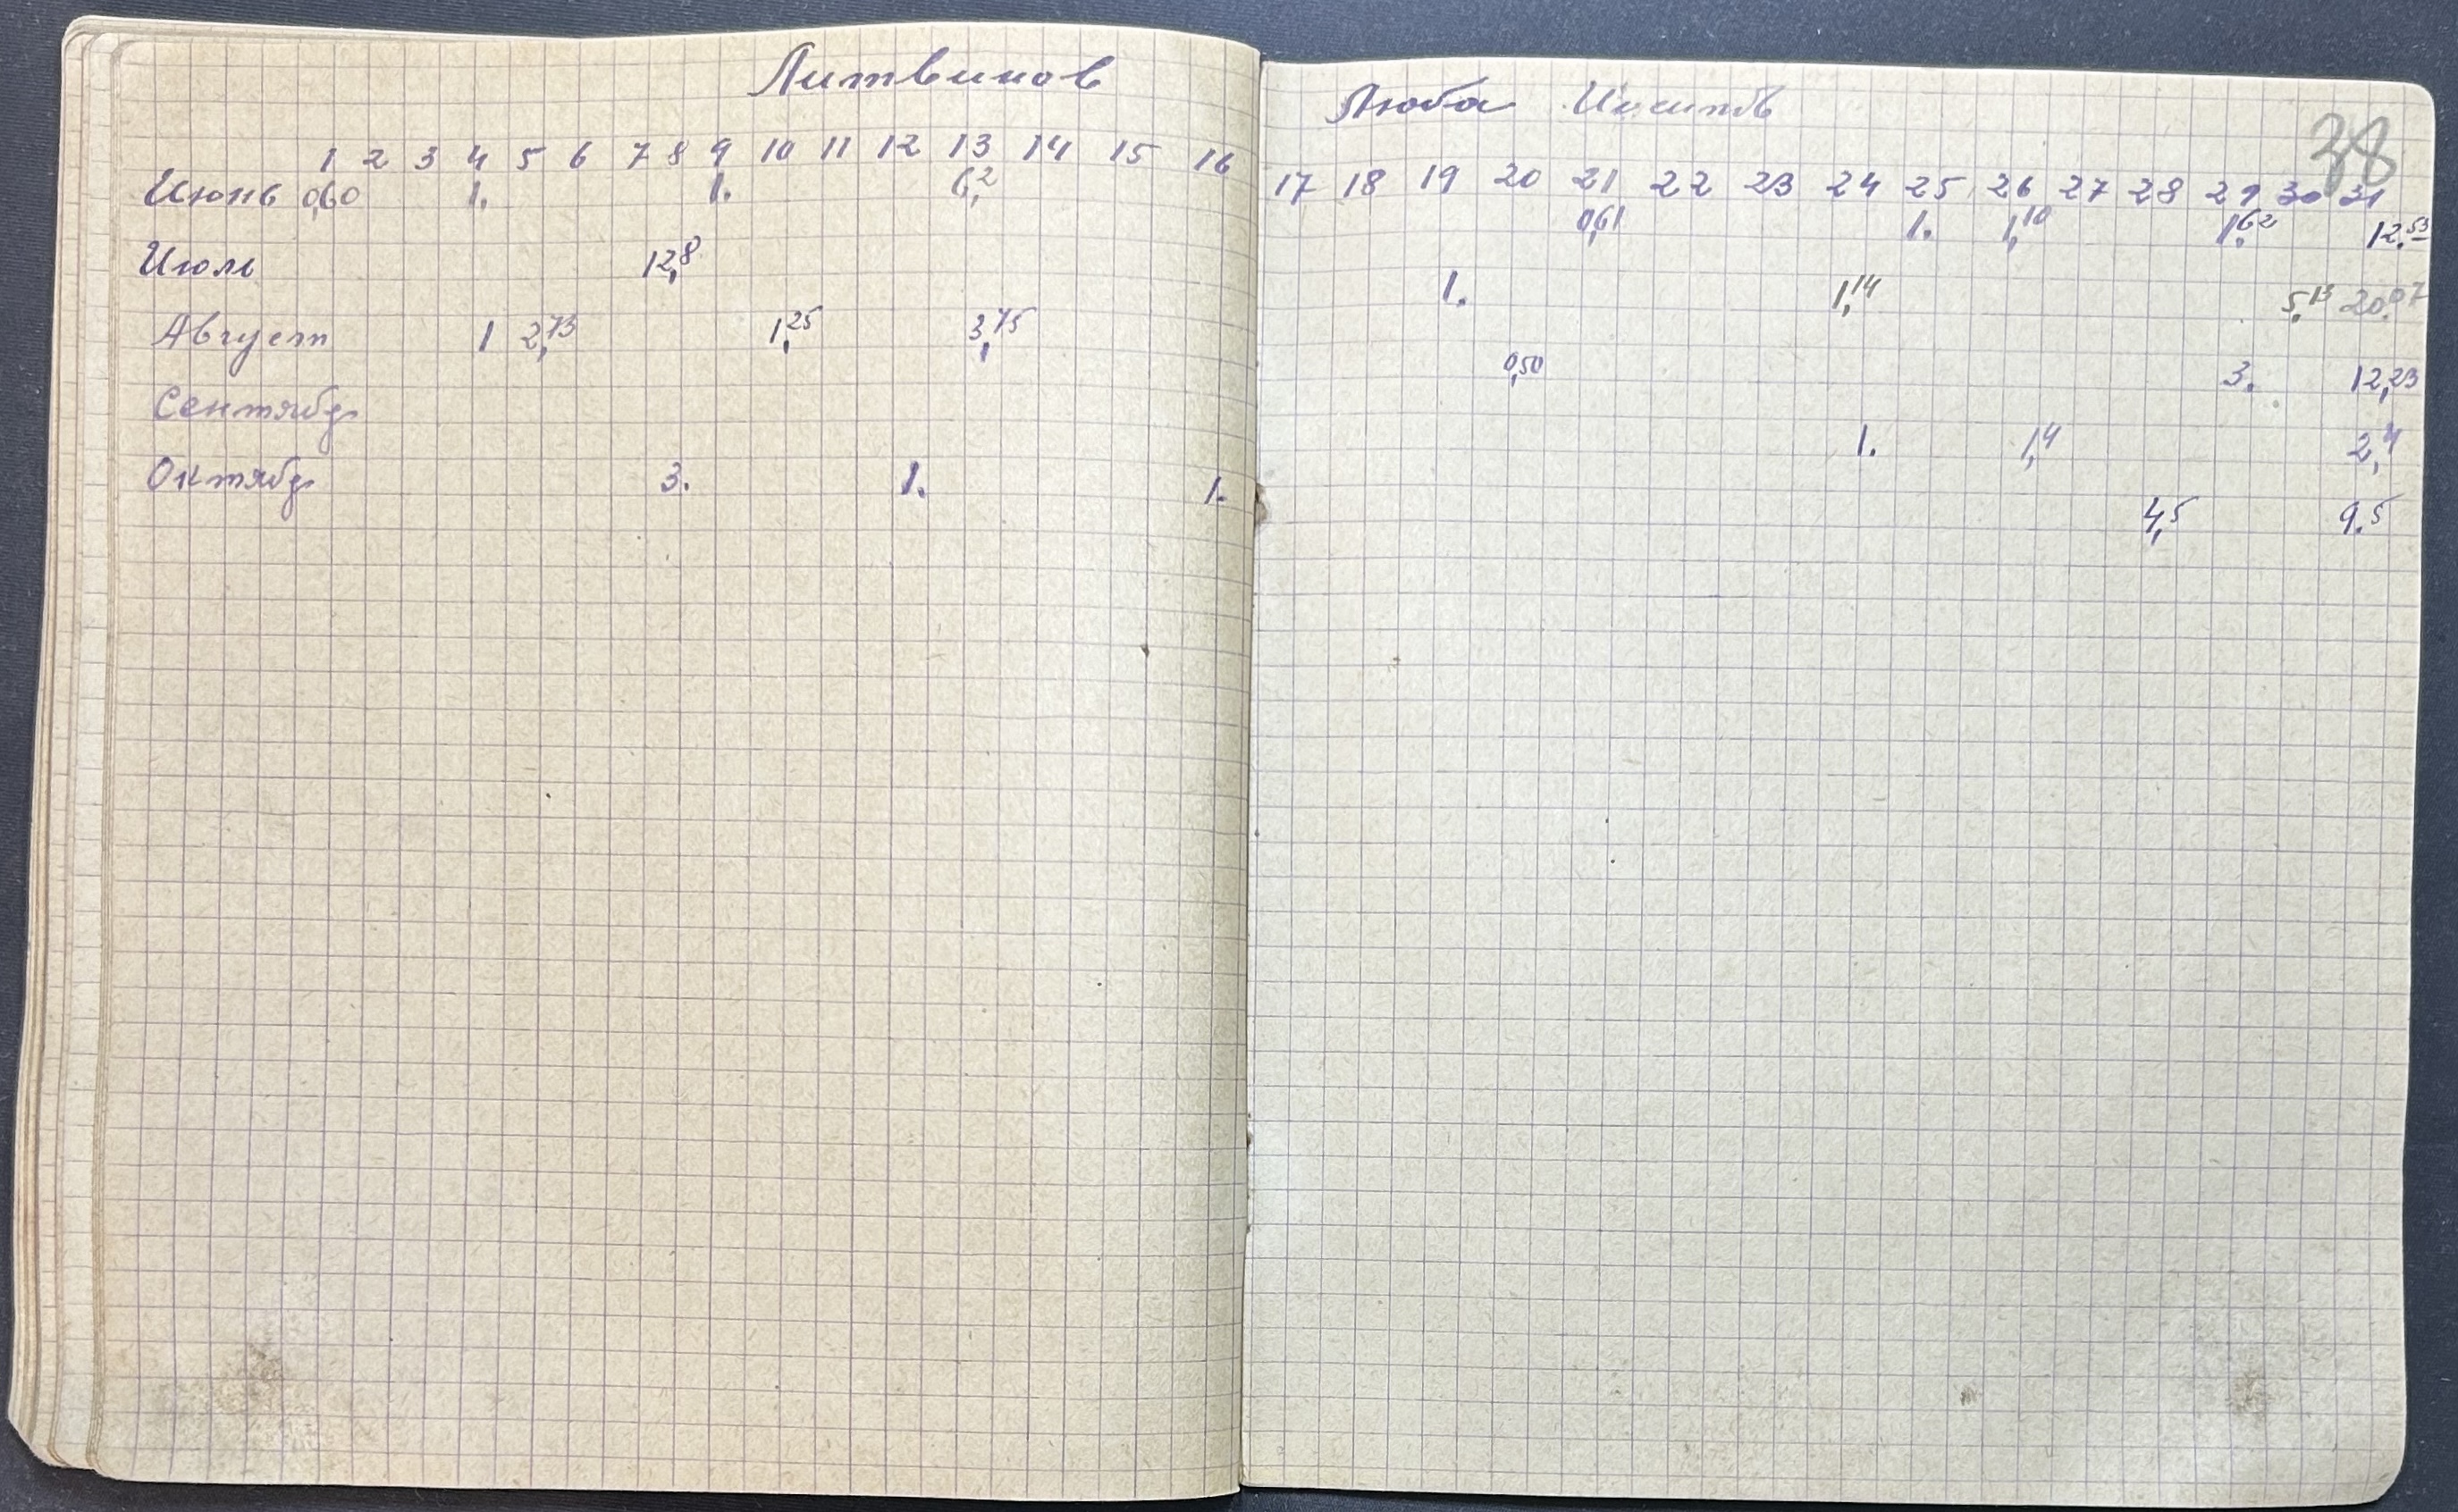 Литвинов Люба Иосипов
38
1 2 3 4 5 6 7 8 9 10 11 12 13 14 15 16 17 18 19 20 21 22 23 24 25 26 27 28 29 30 31
Июнь 0,60 1. 1. 6,2 0,61 1. 1,10 1,62 12.53
Июль 12,8 1. 1,14 5,13 20.07
Август 1 2,73 1,25 3,75 0,50 3. 12,23
Сентябр 1. 1,4 2,4
Октябр 3. 1. 1. 4,5 9.5